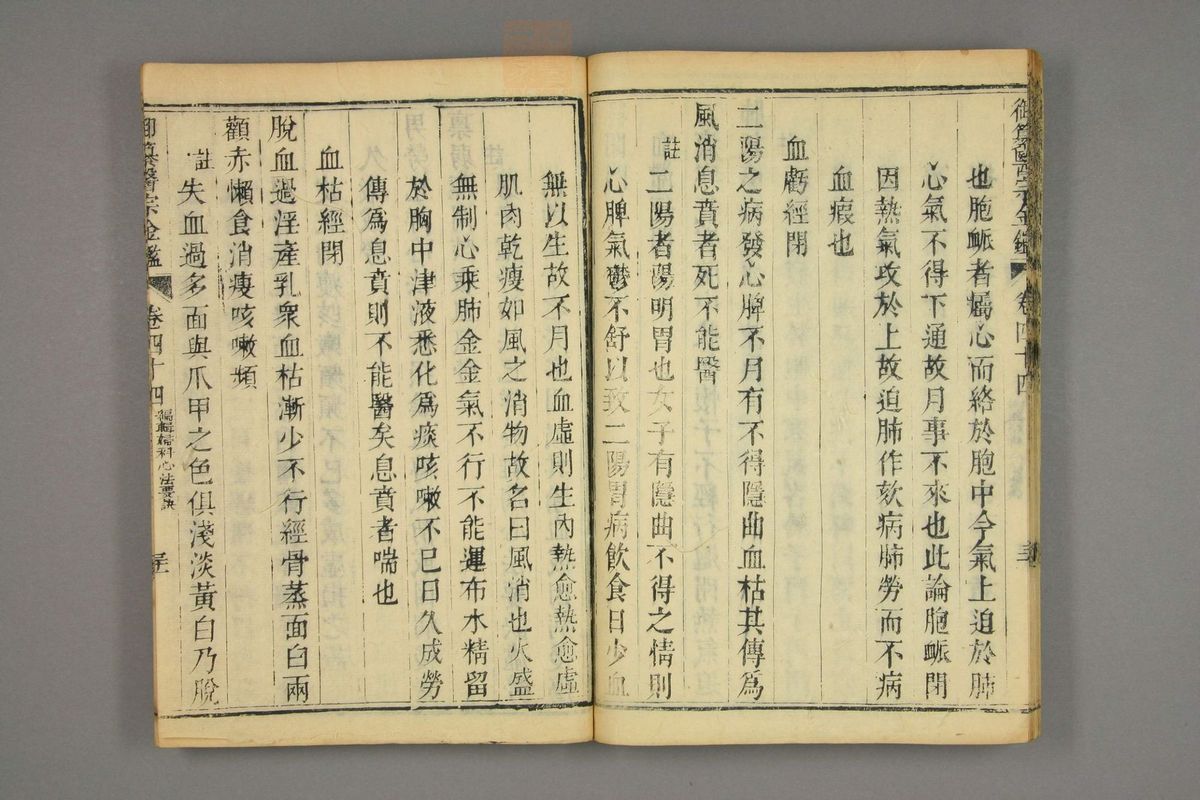 御纂醫宗金鑑 卷四十四
也胞䘑者屬心而絡於胞中今氣上迫於肺
心氣不得下通故月事不來也此論胞䘑閉
因熱氣攻於上故迫肺作欬病肺勞而不病
血瘕也
血虧經閉
二陽之病發心脾不月有不得隱曲血枯其傳爲
風消息賁者死不能醫
註 二陽者陽明胃也女子有隱曲不得之情則
心脾氣鬱不舒以致二陽胃病飲食日少血
無以生故不月也血虛則生內熱愈熱愈虛
肌肉乾瘦如風之消物故名曰風消也火盛
無制心乘肺金金氣不行不能運布水精留
於胸中津液悉化爲痰咳嗽不已日久成勞
傳爲息賁則不能醫矣息賁者喘也
血枯經閉
脫血過淫產乳衆血枯漸少不行經骨蒸面白兩
顴赤懶食消瘦咳嗽頻
註 失血過多面與爪甲之色俱淺淡黃白乃脫
御纂醫宗金鑑 卷四十四 編輯婦科心法要訣